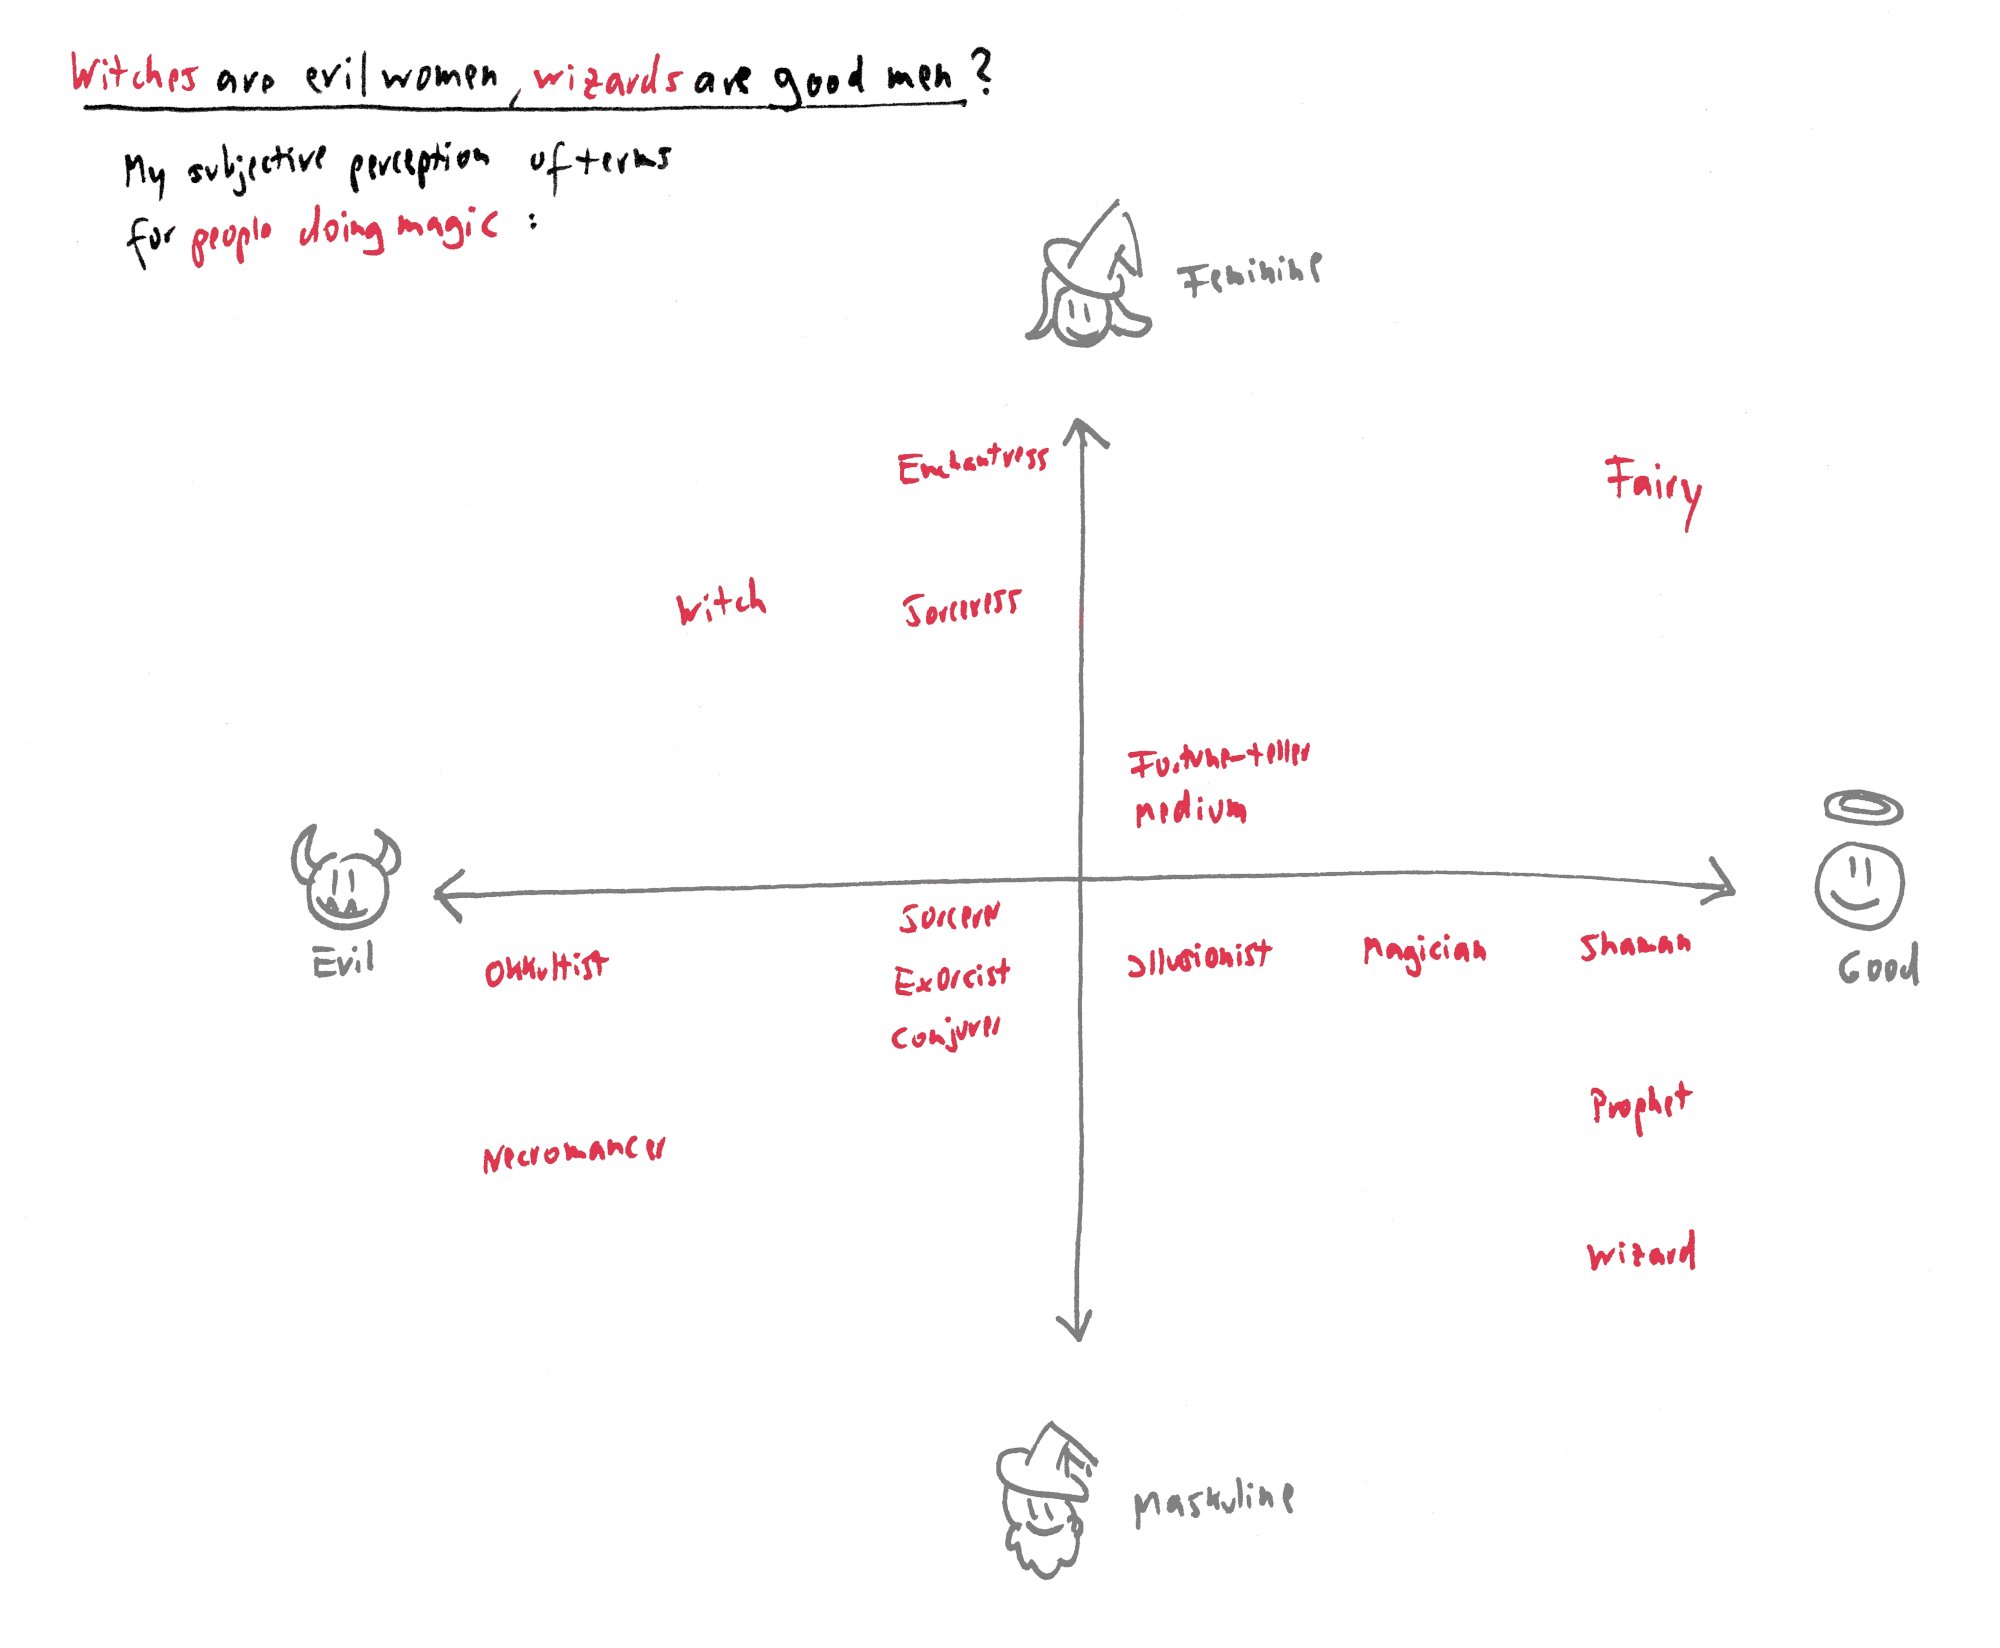 Witches are evil women, wizards are good men?
My subjective perception of terms
for people doing magic:
Feminine
Enchantress
Fairy
Witch
Sorceress
Fortune-teller
medium
Evil
Good
Sorcerer
Okkultist
Exorcist
Illusionist
Magician
Shaman
Conjurer
Prophet
Necromancer
Wizard
Maskuline